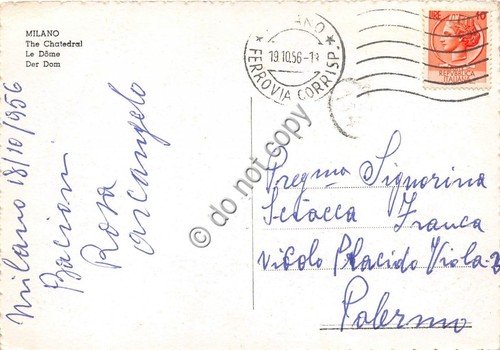 MILANO
The Chatedral
Le Dôme
Der Dom
Milano 18/10/1956
Bacioni
Rosa
Arcangelo
MILANO
19.10.56-1
FERROVIA CORRISP.
LIRE 10
REPVBBLICA
ITALIANA
do not copy
Pregma Signorina
Sciacca Franca
vicolo Placido Viola-3
Palermo